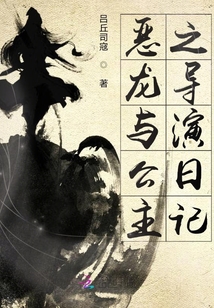 之导演日记
恶龙与公主
吕丘司寇◎著